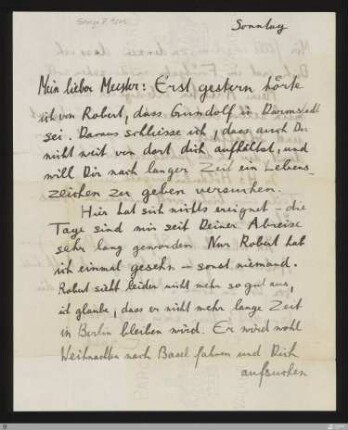 Sonntag
Mein lieber Meister: Erst gestern hörte
ich von Robert, dass Gundolf in Darmstadt
sei. Daraus schliesse ich, dass auch Du
nicht weit von dort dich aufhältst, und
will Dir nach langer Zeit ein Lebens-
zeichen zu geben versuchen.
Hier hat sich nichts ereignet - die
Tage sind mir seit Deiner Abreise
sehr lang geworden. Nur Robert hab
ich einmal gesehn - sonst niemand.
Robert sieht leider nicht mehr so gut aus,
ich glaube, dass er nicht mehr lange Zeit
in Berlin bleiben wird. Er wird wohl
Weihnachten nach Basel fahren und Dich
aufsuchen